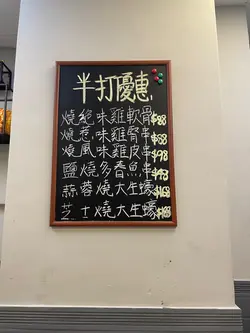 半打優惠
燒絕味雞軟骨$88
燒惹味雞腎串$68
燒風味雞皮串$78
鹽燒多春魚串$98
蒜蓉燒大生蠔$168
芝士燒大生蠔$168